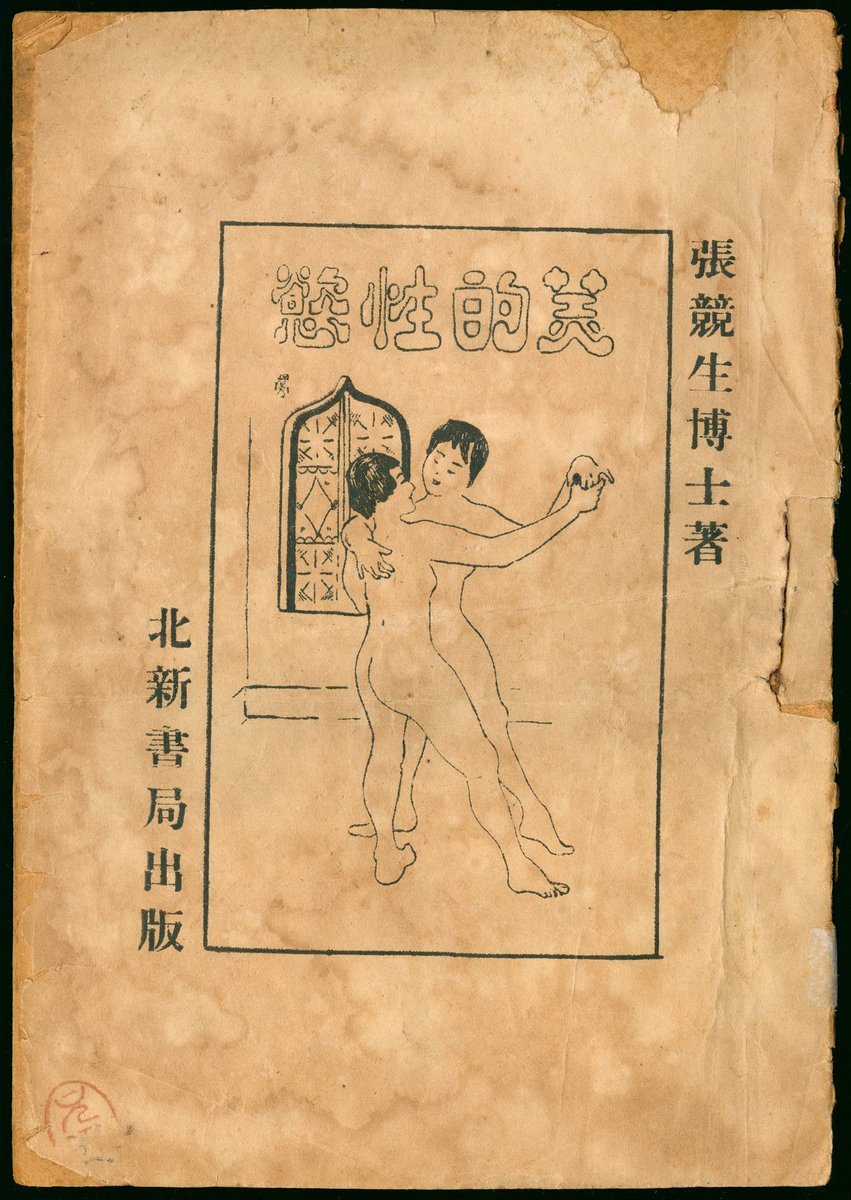 美的性慾
張競生博士著
北新書局出版